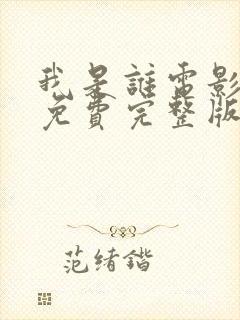 我是誰電影
免費完整版
范緒鍇